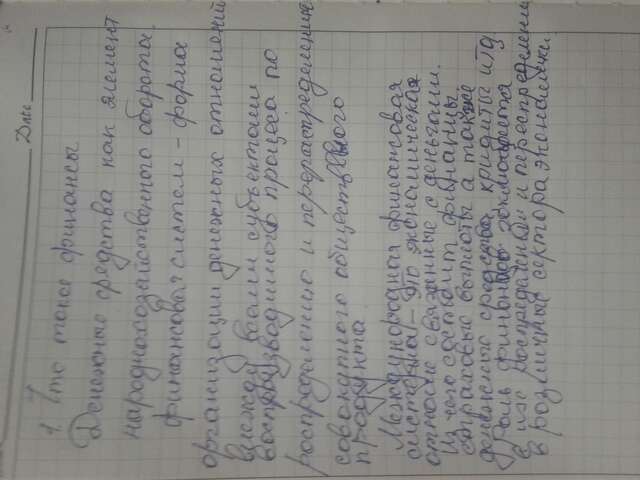 Date
1. Что такое финансы
Денежные средства как элемент
народнохозяйственного оборота.
финансовая систем - форма
организации денежных отношений
между всеми субъектами
воспроизводимого процеса по
роспределению и перераспределению
совокупного общественого
продукта
Международная финансовая
система - это экономическая
относие связанные с деньгами.
Из чего состоит финансы
страховые выплаты а также
денежные средства, кридиты итд
Роль финансов заключается
в их распределении и переспределении
в различные сектора экономики.